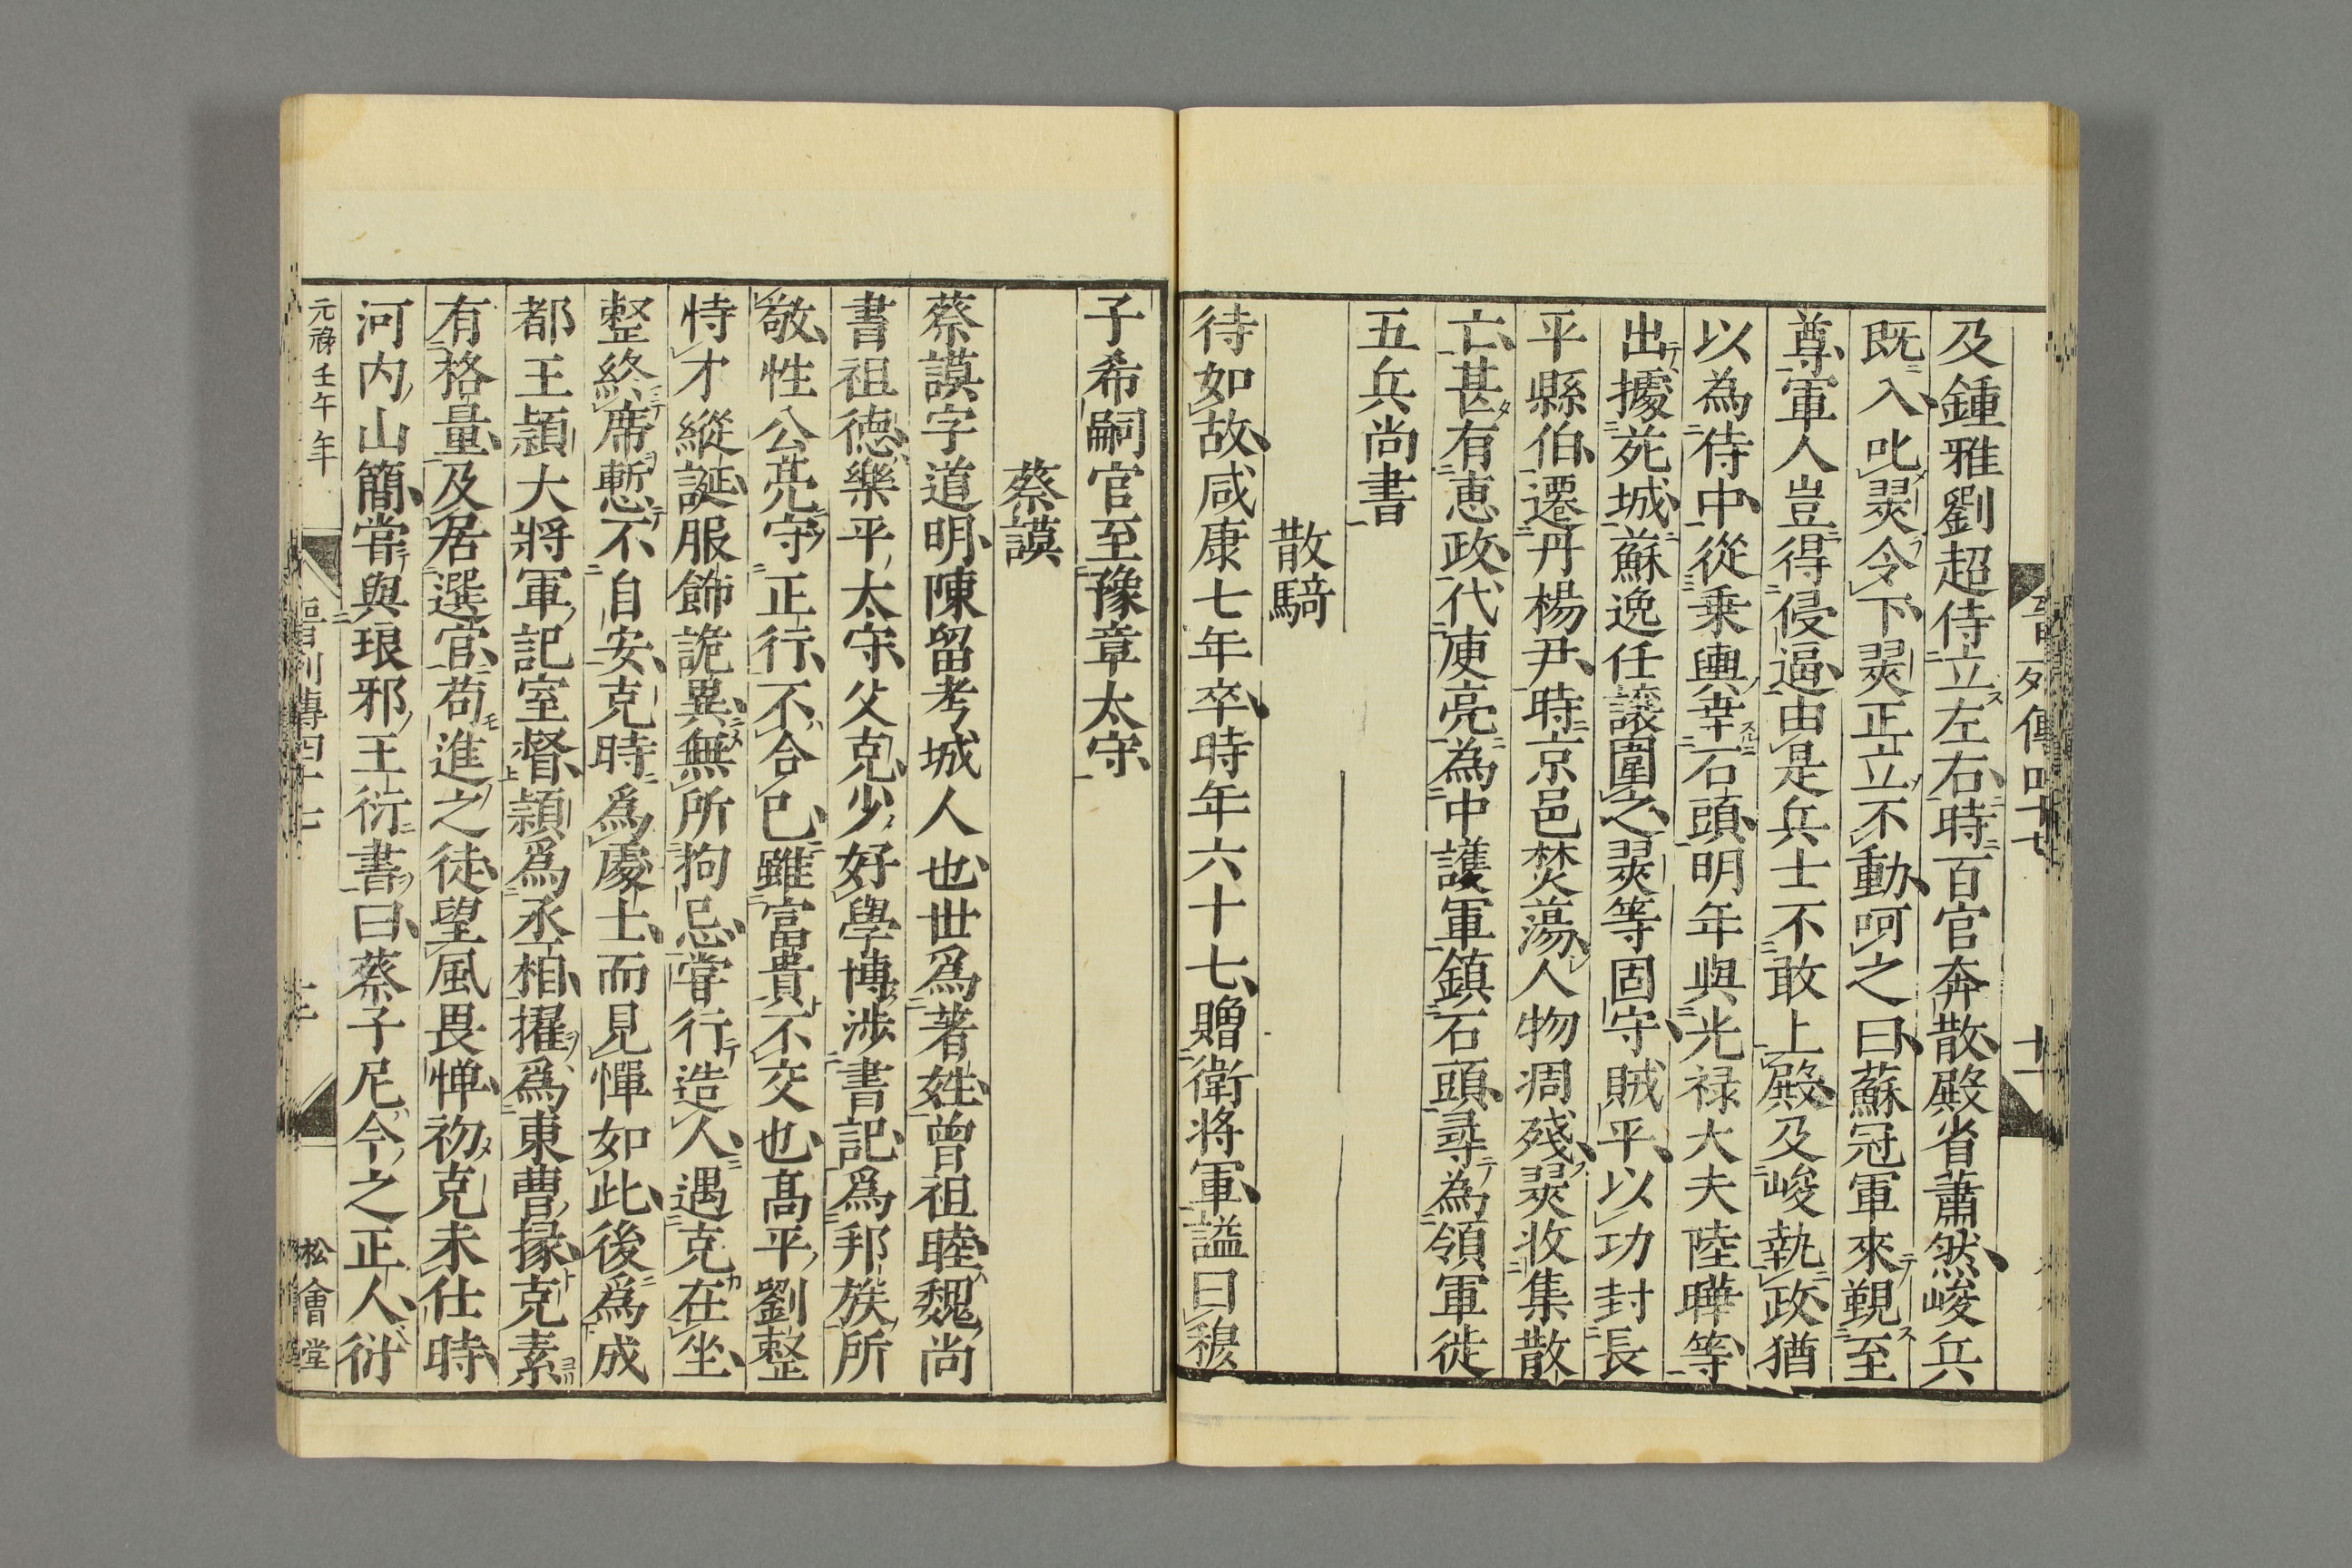 及鍾雅劉超侍立左右時百官奔散殿省蕭然峻兵
既入叱翜令下翜正立不動呵之曰蘇冠軍來覲至
尊軍人豈得侵逼由是兵士不敢上殿及峻執政猶
以為侍中從乗輿幸石頭明年與光禄大夫陸曄等
出據苑城蘇逸任讓圍之翜等固守賊平以功封長
平縣伯遷丹楊尹時京邑焚蕩人物凋殘翜收集散
亡甚有恵政代庾亮為中護軍鎮石頭尋為領軍徙
五兵尚書
散騎
待如故咸康七年卒時年六十七贈衛将軍謚曰穆
子希嗣官至豫章太守
蔡謨
蔡謨字道明陳留考城人也世爲著姓曾祖睦魏尚
書祖徳樂平太守父克少好學博渉書記爲邦族所
敬性公亮守正行不合已雖富貴不交也髙平劉整
恃才縱誕服飾詭異無所拘忌嘗行造人遇克在坐
整終席慙不自安克時爲處士而見憚如此後爲成
都王頴大將軍記室督頴爲丞相擢爲東曹掾克素
有格量及居選官苟進之徒望風畏憚初克未仕時
河内山簡嘗與琅邪王衍書曰蔡子尼今之正人衍
元禄壬午年
松會堂